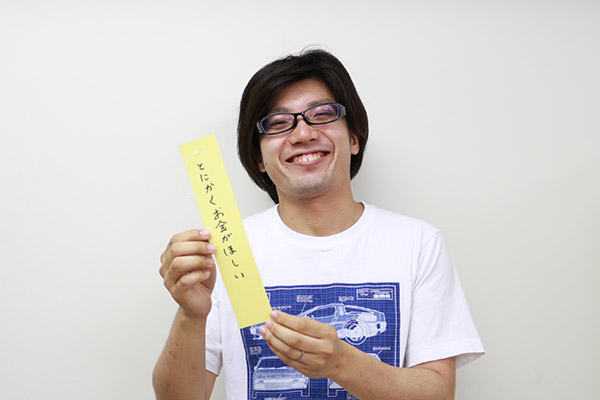 とにかく、お金がほしい